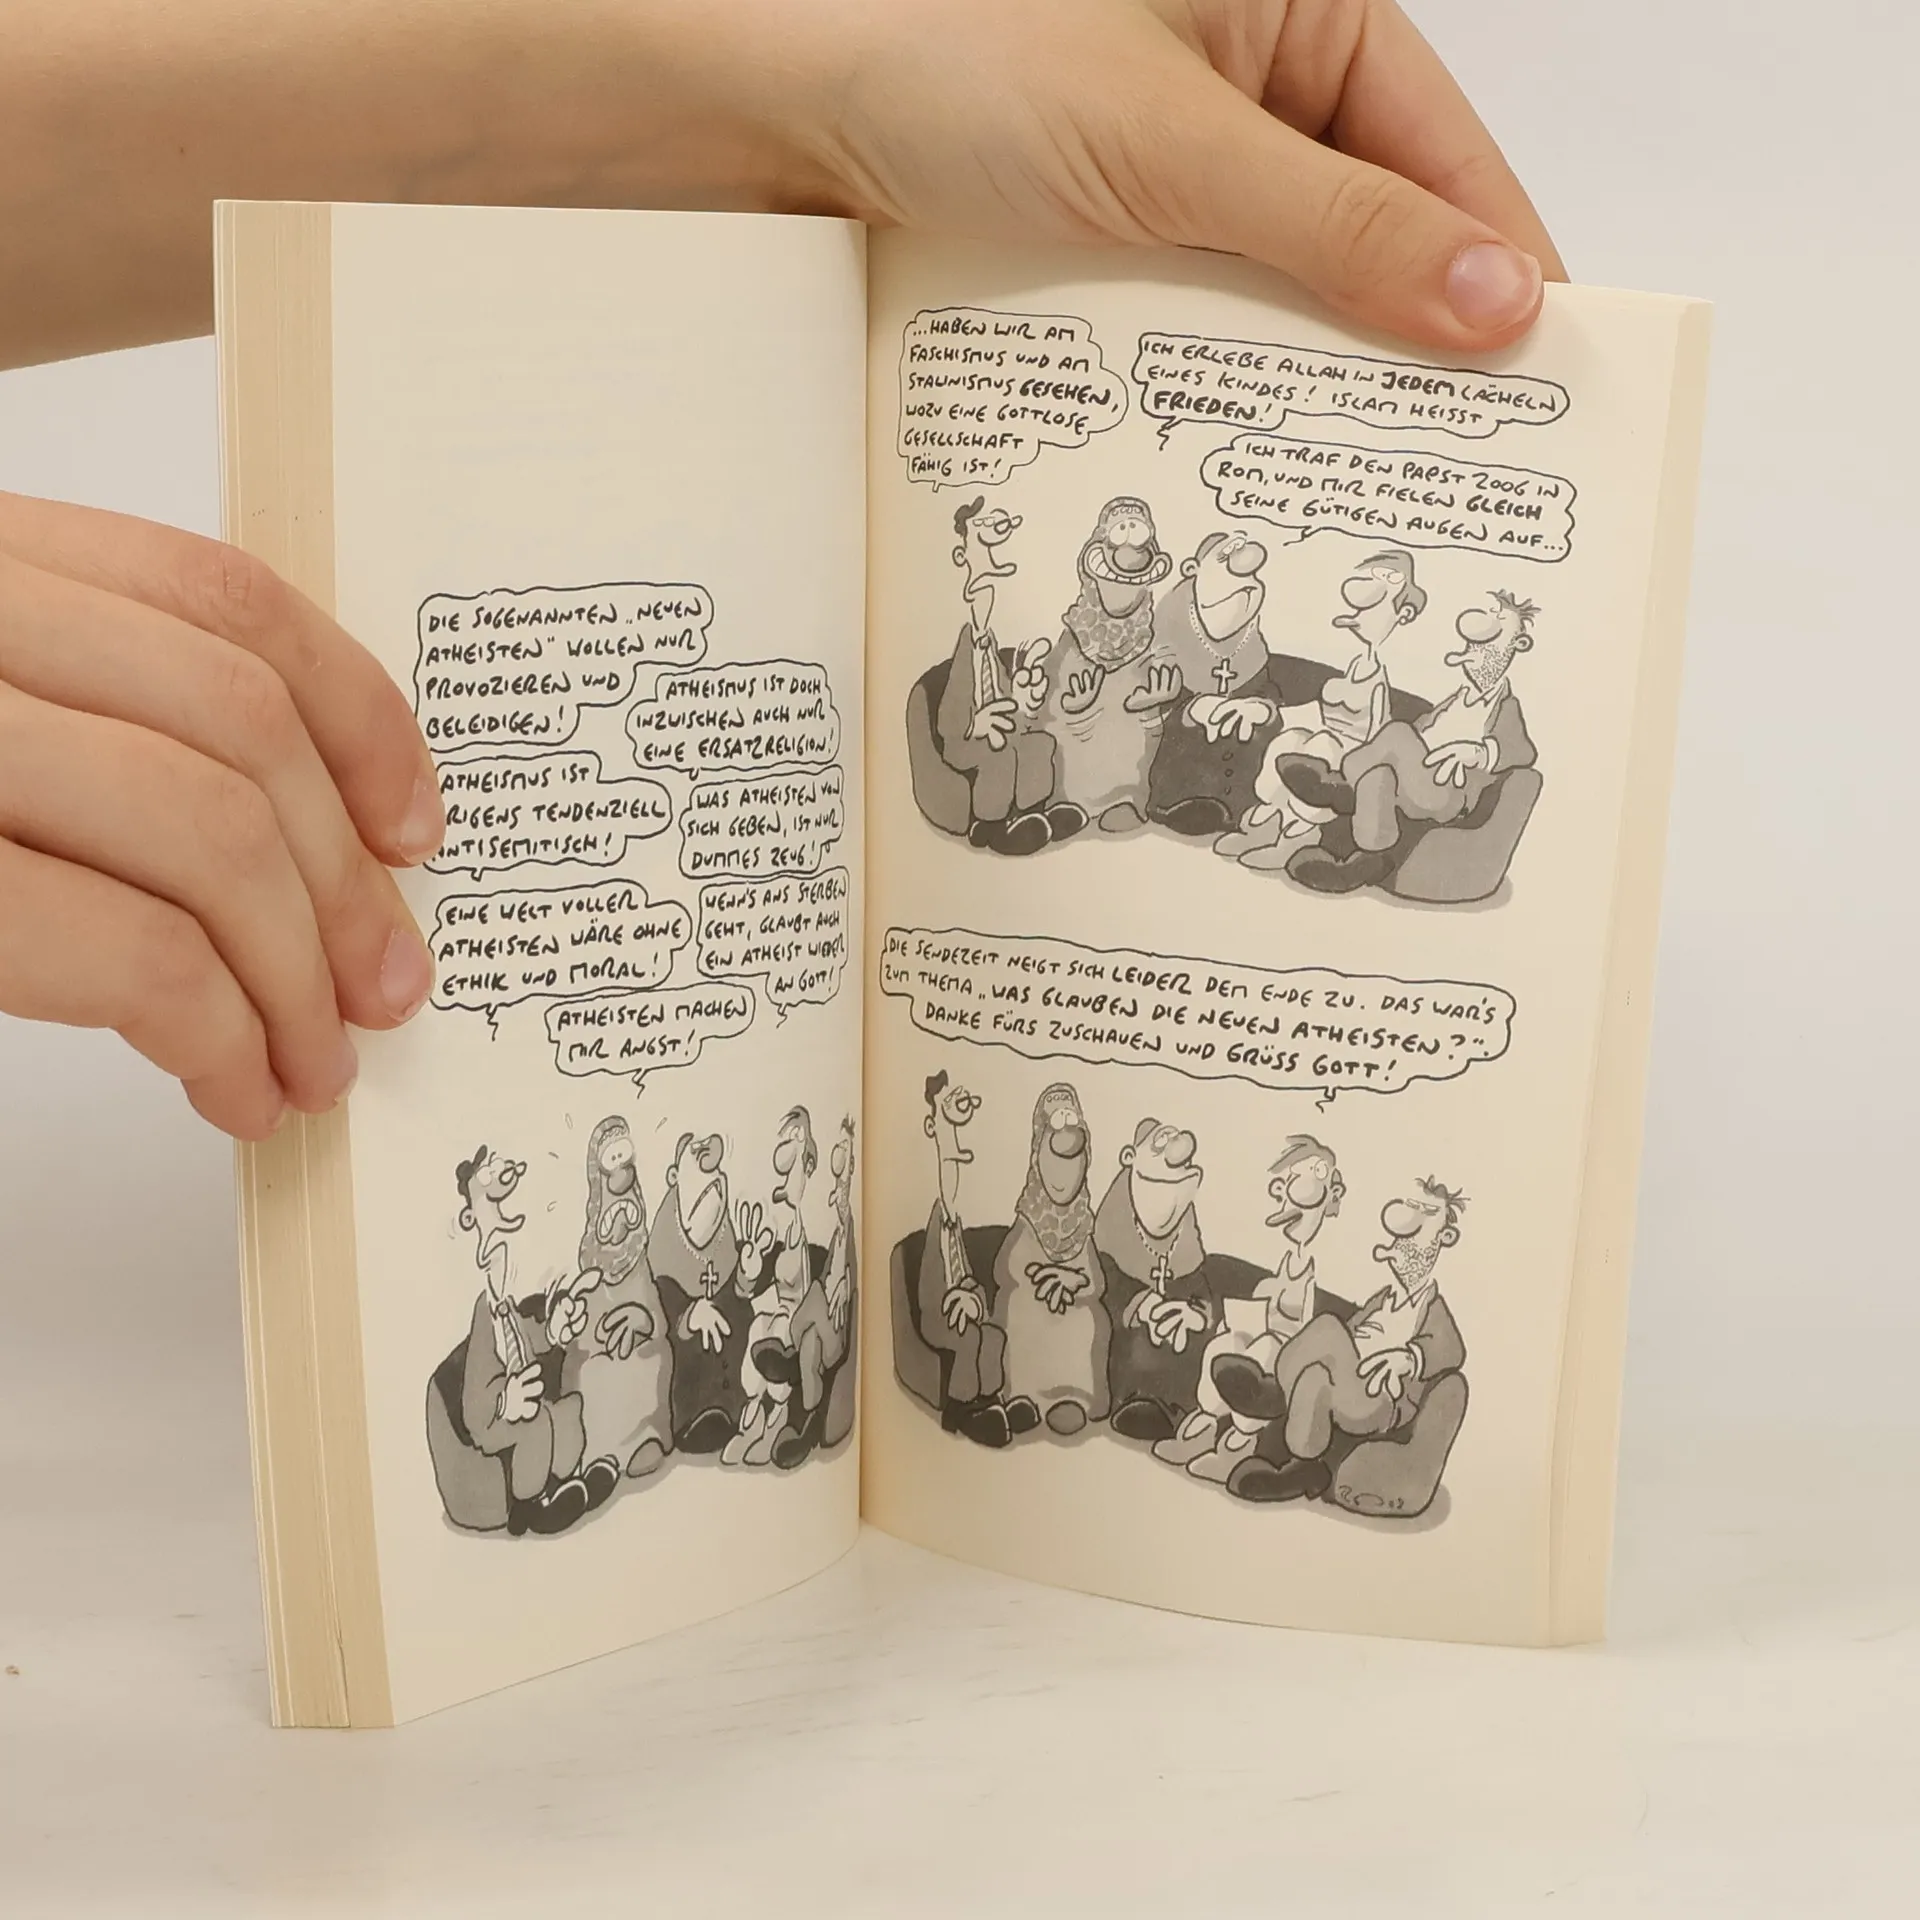 DIE SOGENANNTEN „NEUEN
ATHEISTEN" WOLLEN NUR
PROVOZIEREN UND
BELEIDIGEN!
ATHEISMUS IST DOCH
INZWISCHEN AUCH NUR
EINE ERSATZRELIGION!
ATHEISMUS IST
TENDENZIELL
ANTISEMITISCH!
WAS ATHEISTEN VON
SICH GEBEN, IST NUR
DUMMES ZEUG!
EINE WELT VOLLER
ATHEISTEN WÄRE OHNE
ETHIK UND MORAL!
WENN'S ANS STERBEN
GEHT, GLAUBT AUCH
EIN ATHEIST WIEDER
AN GOTT!
ATHEISTEN MACHEN
MIR ANGST!
...HABEN WIR AM
FASCHISMUS UND AM
STALINISMUS GESEHEN,
WOZU EINE GOTTLOSE
GESELLSCHAFT
FÄHIG IST!
ICH ERLEBE ALLAH IN JEDEM LÄCHELN
EINES KINDES! ISLAM HEISST
FRIEDEN!
ICH TRAF DEN PAPST 2006 IN
ROM, UND MIR FIELEN GLEICH
SEINE GÜTIGEN AUGEN AUF...
DIE SENDEZEIT NEIGT SICH LEIDER DEM ENDE ZU. DAS WAR'S
ZUM THEMA „WAS GLAUBEN DIE NEUEN ATHEISTEN?".
DANKE FÜRS ZUSCHAUEN UND GRÜSS GOTT!